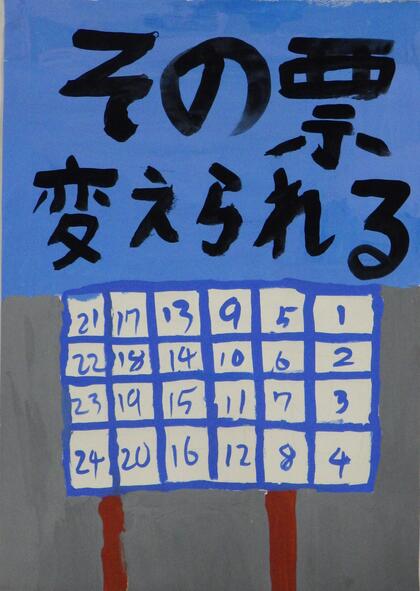 その票
変えられる
21 17 13 9 5 1
22 18 14 10 6 2
23 19 15 11 7 3
24 20 16 12 8 4